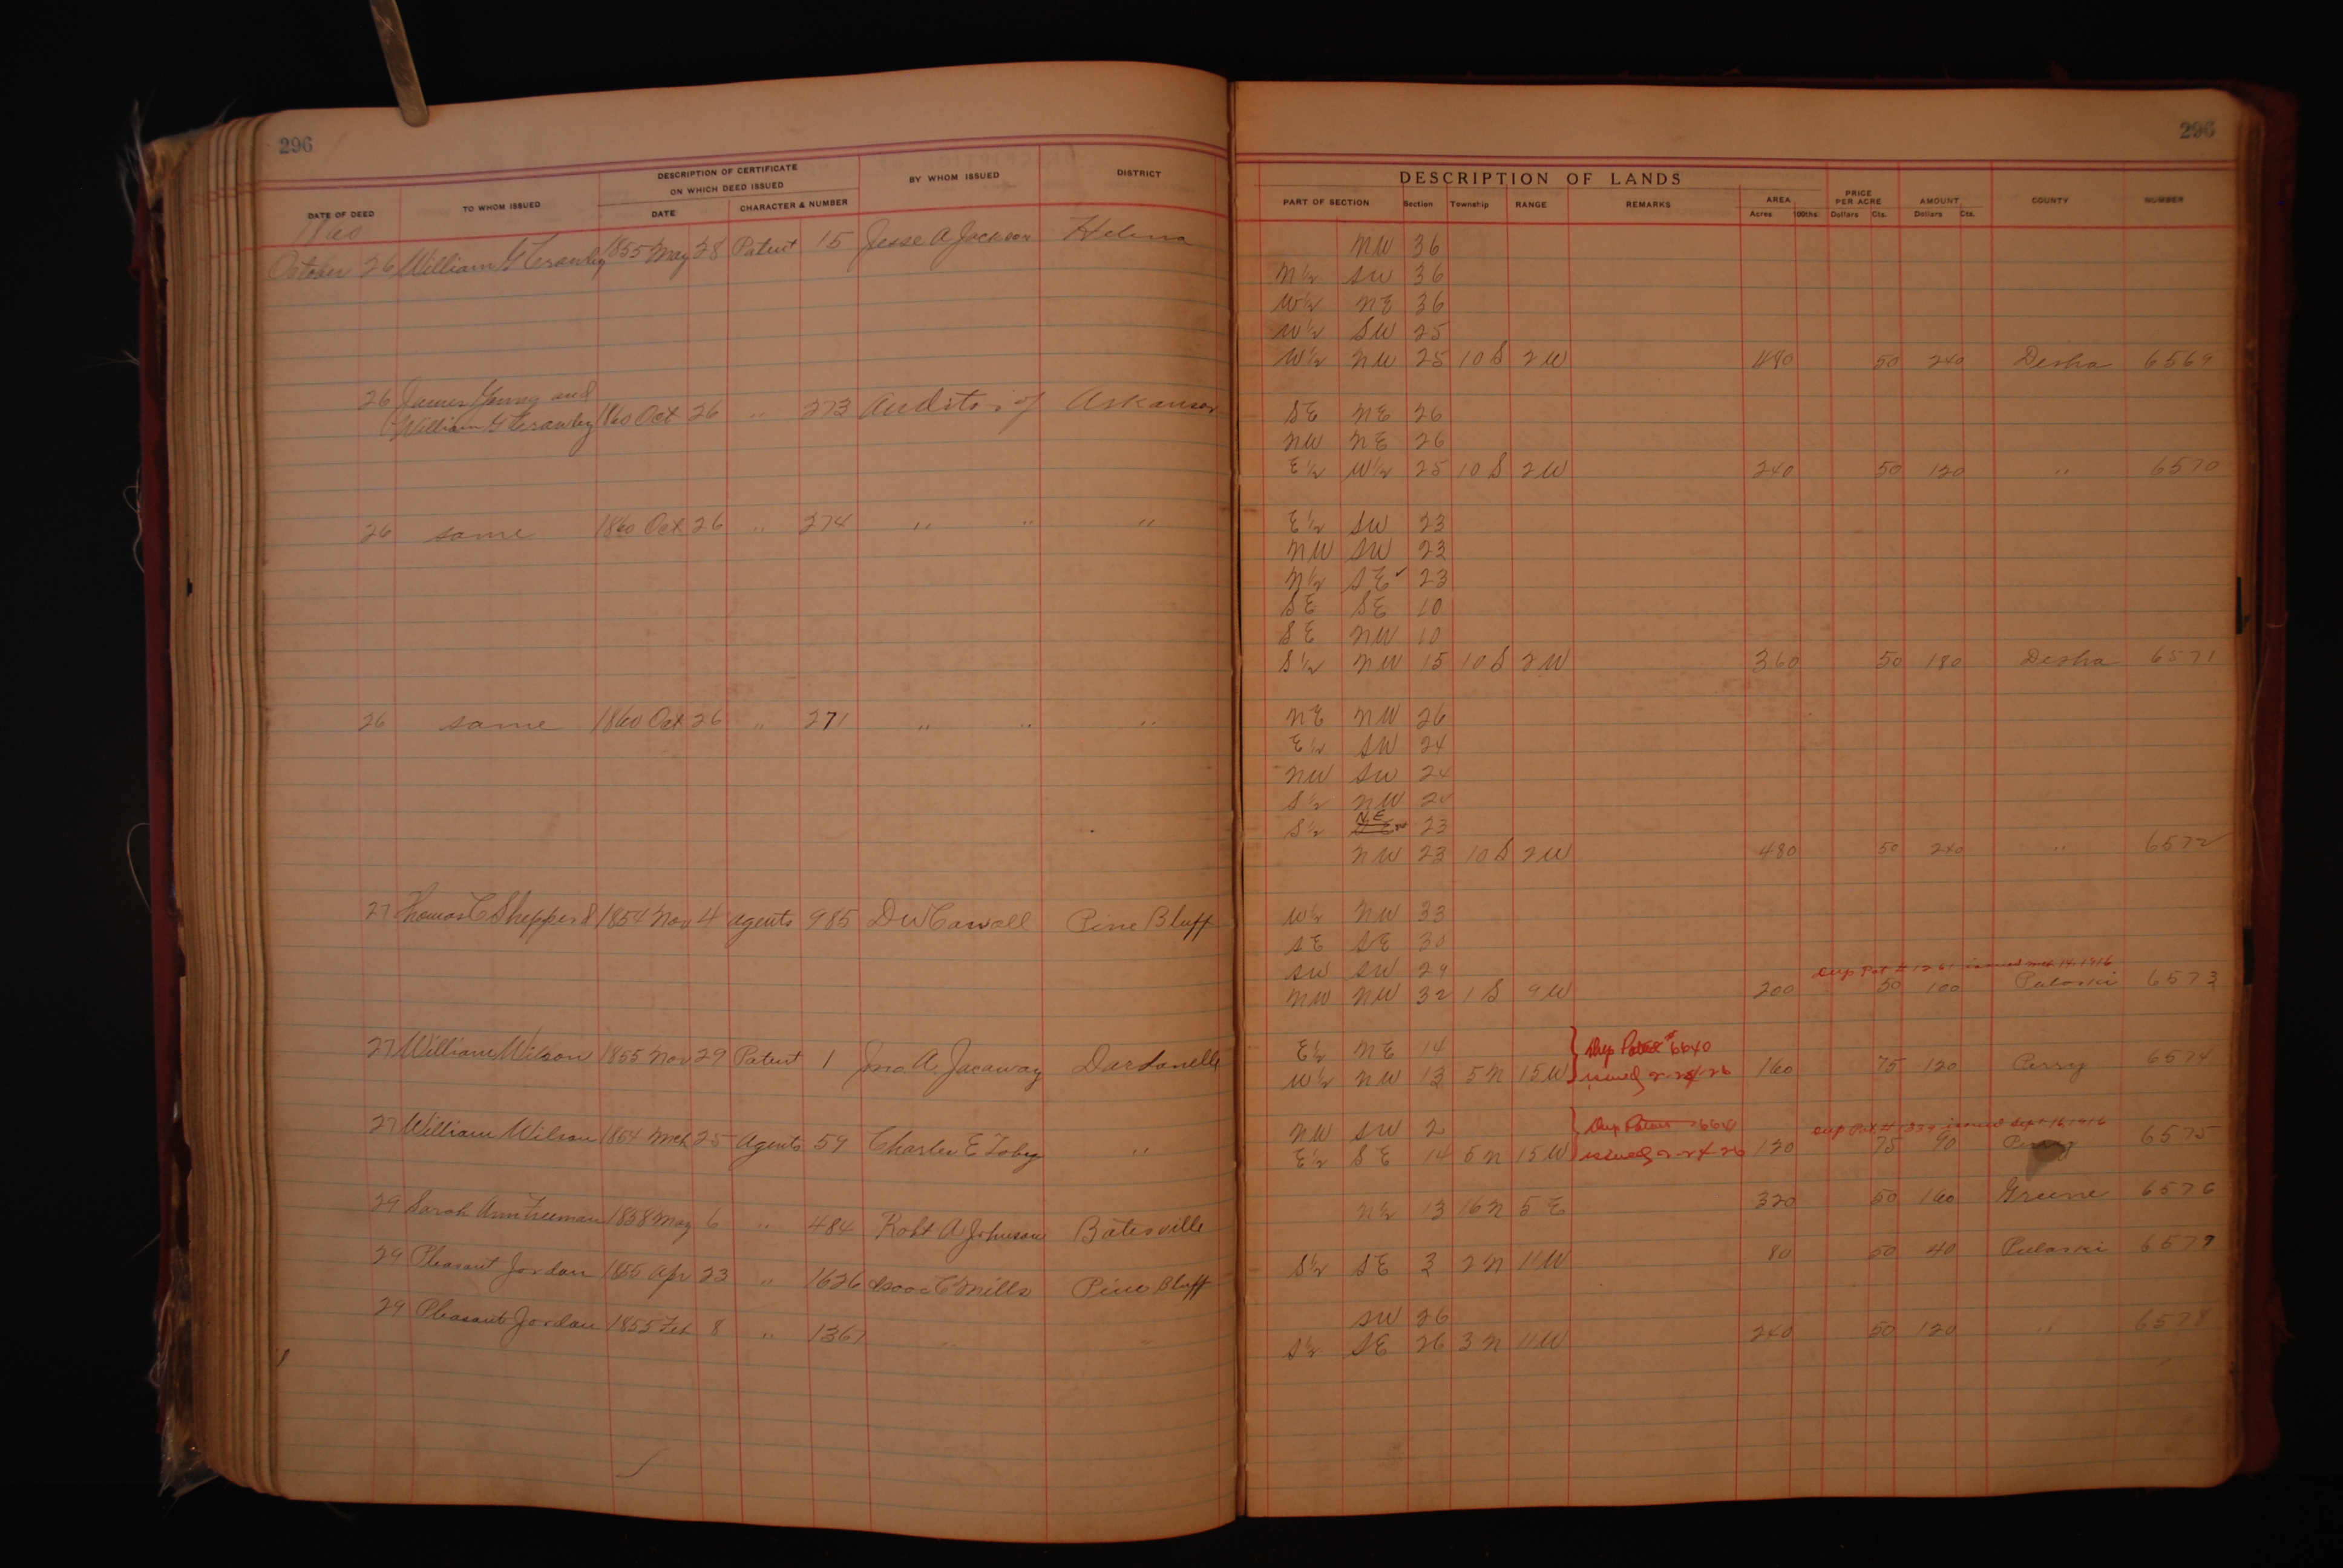 296
296
DATE OF DEED TO WHOM ISSUED DESCRIPTION OF CERTIFICATE ON WHICH DEED ISSUED DATE CHARACTER & NUMBER BY WHOM ISSUED DISTRICT
DESCRIPTION OF LANDS
PART OF SECTION Section Township RANGE REMARKS AREA Acres 100ths. PRICE PER ACRE Dollars Cts. AMOUNT Dollars Cts. COUNTY NUMBER
1860
October 26 William G 1855 May 28 Patent 15 Jesse A Jackson Helena NW 36
N½ SW 36
W½ NE 36
W½ SW 25
W½ NW 25 10 S 2W 480 50 240 Desha 6569
26 James Young and
William G 1860 Oct 26 " 273 Auditor of Arkansas SE NE 26
NW NE 26
E½ W½ 25 10 S 2W 240 50 120 " 6570
26 same 1860 Oct 26 " 274 " " " E½ SW 23
NW SW 23
N½ SE 23
SE SE 10
SE NW 10
S½ NW 15 10 S 2W 360 50 180 Desha 6571
26 same 1860 Oct 26 " 271 " " " NE NW 26
E½ SW 24
NW SW 24
S½ NW 24
S½ NE 23
NW 23 10 S 2W 480 50 240 " 6572
27 Thomas C Shepperd 1854 Nov 4 Agents 985 D W Carroll Pine Bluff W½ NW 33
SE SE 30
SW SW 29
Dup Pat # 1261 issued 14, 1916
NW NW 32 1 S 9W 200 50 100 Pulaski 6573
27 William Wilson 1855 Nov 29 Patent 1 Jno. A. Jacaway Dardanelle E½ NE 14 Dup Patent # 6640
W½ NW 13 5 N 15W issued 2-24-26 160 75 120 Perry 6574
27 William Wilson 1854 Mch 25 Agents 59 Charles E Tobey " NW SW 2 Dup Patent 6640 Dup Pat # issued Sept 16, 1916
E½ SE 14 5 N 15W issued 2-24-26 120 75 90 Perry 6575
29 Sarah Ann Freeman 1858 May 6 " 484 Robt A Johnson Batesville N½ 13 16 N 5 E 320 50 160 Greene 6576
29 Pleasant Jordan 1855 Apr 23 " 1626 Isaac C Mills Pine Bluff S½ SE 3 2 N 11W 80 50 40 Pulaski 6577
29 Pleasant Jordan 1855 Feb 8 " 1367 " " SW 26
S½ SE 26 3 N 11W 240 50 120 " 6578